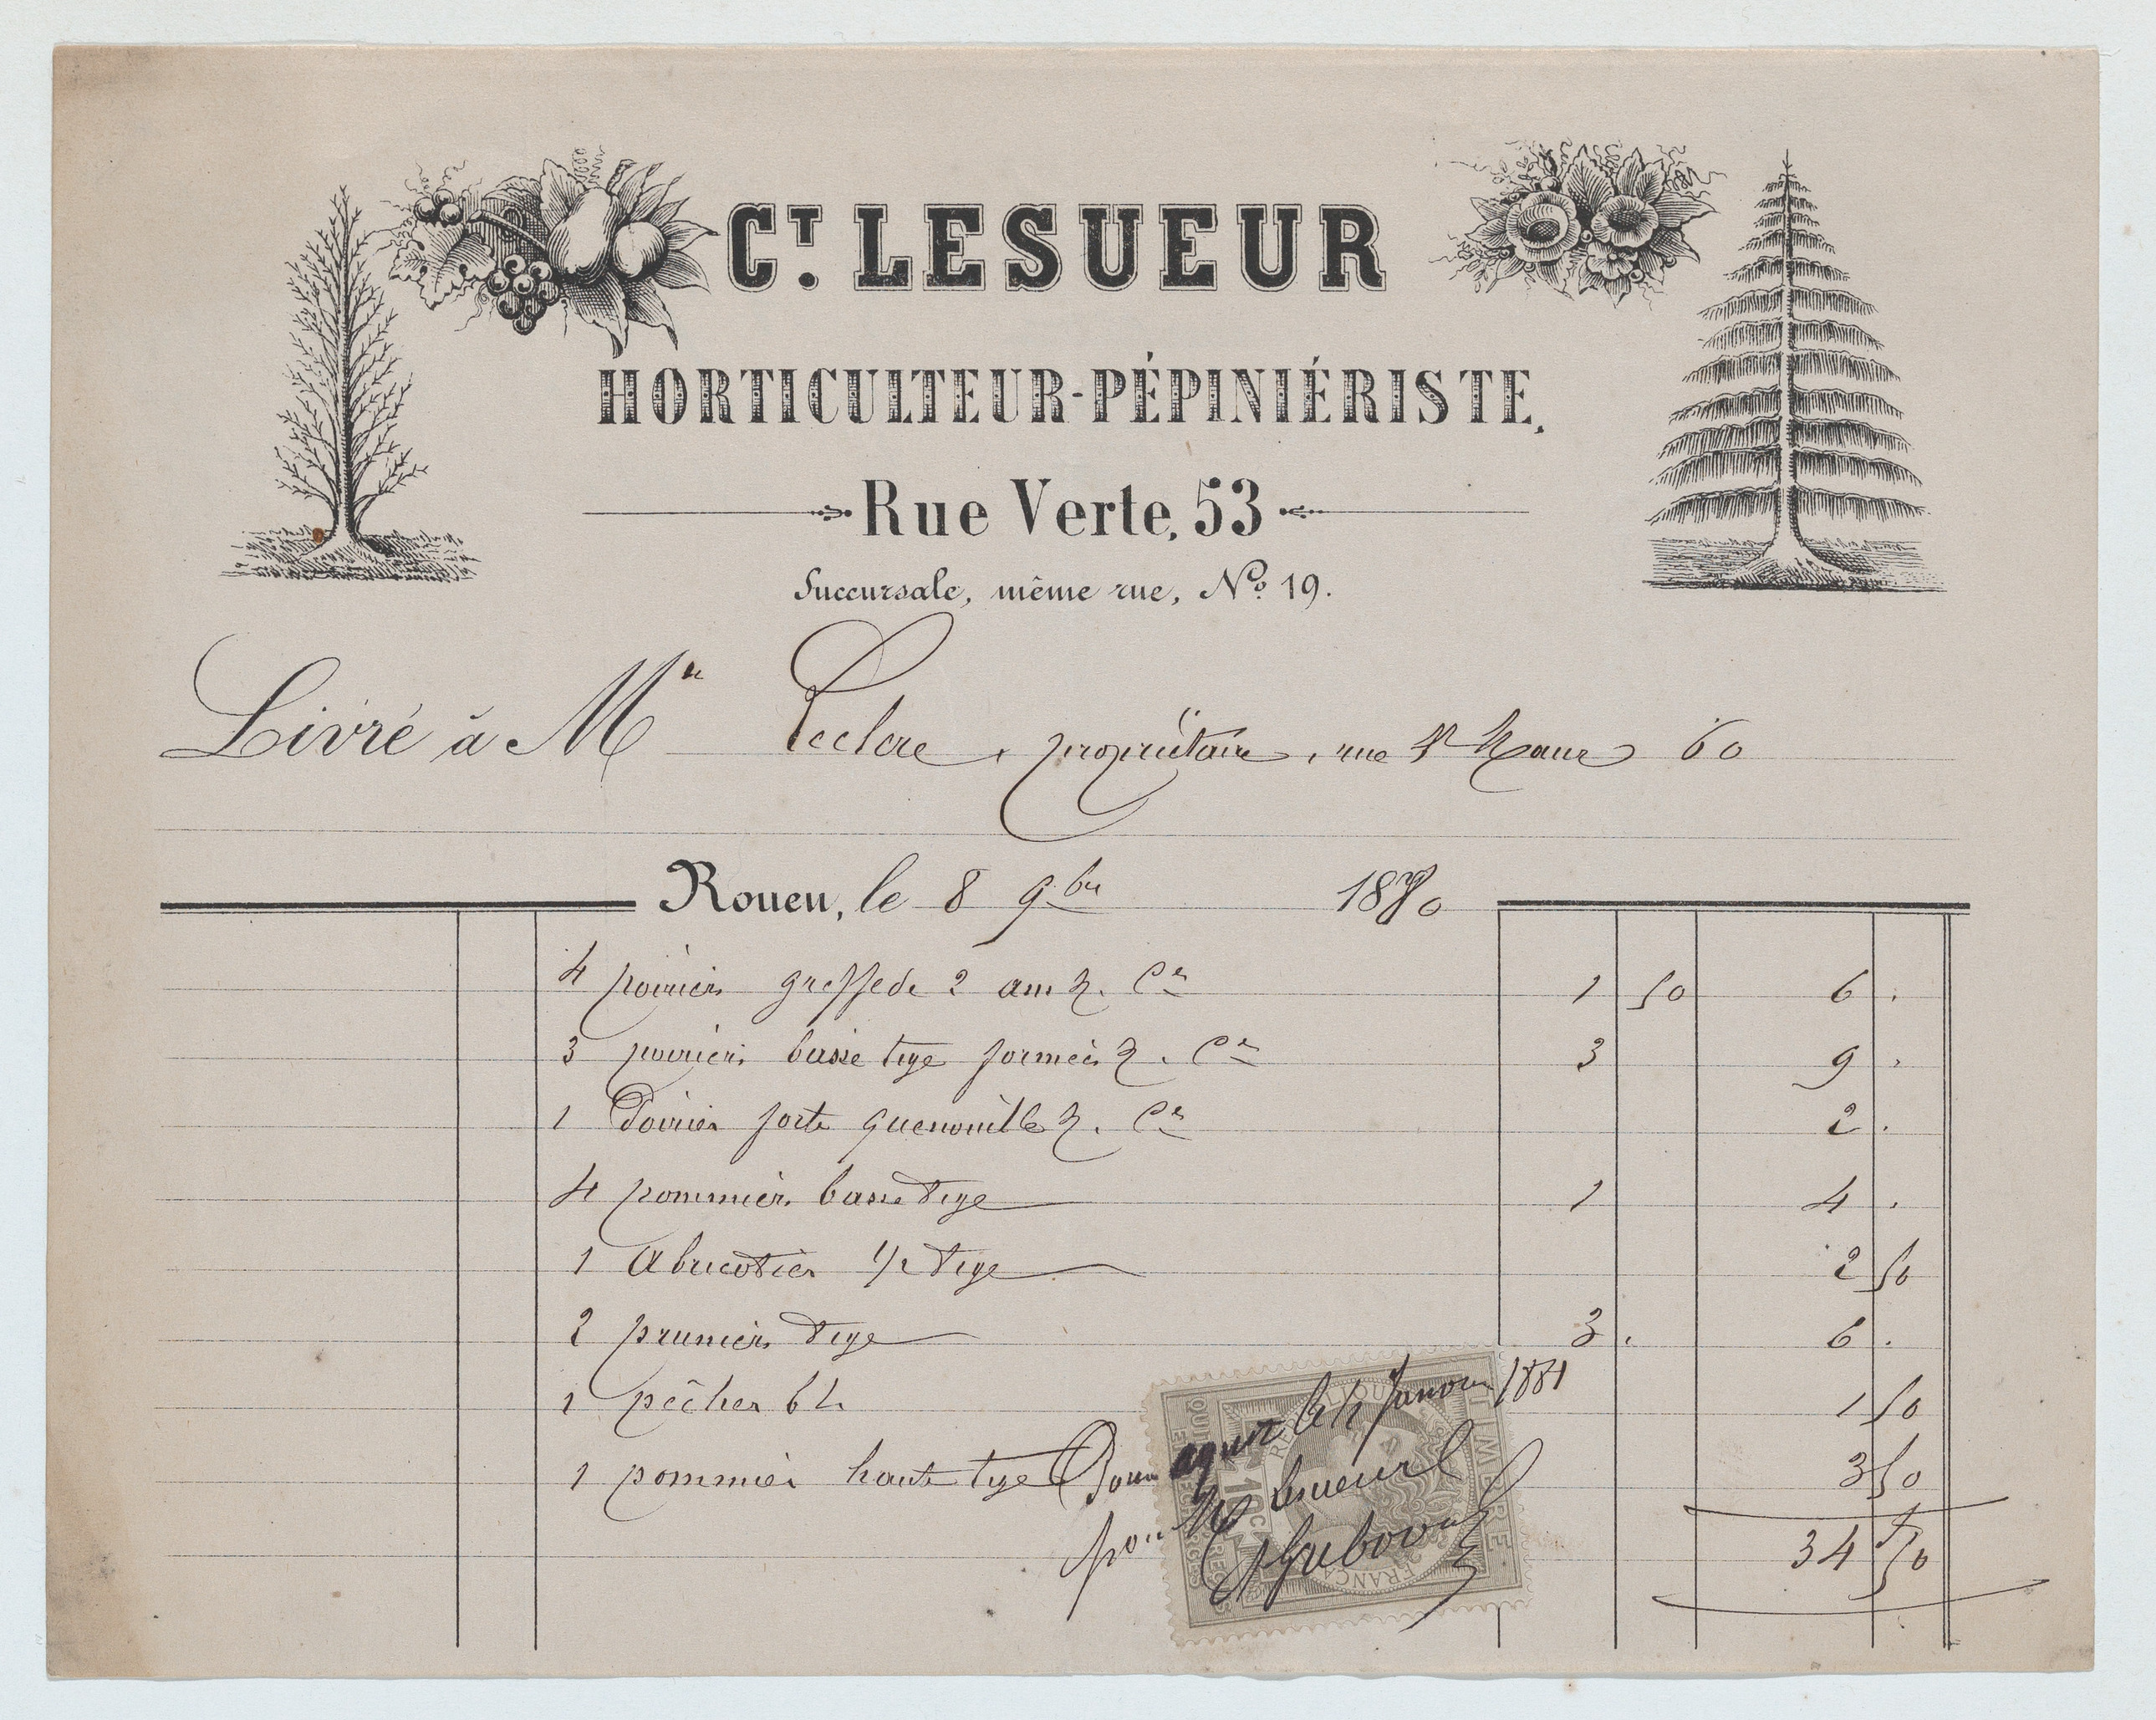 CT. LESUEUR
HORTICULTEUR-PÉPINIÉRISTE.
Rue Verte, 53
Succursale, même rue, No. 19.
Livré à Mr Leclerc, propriétaire, rue St Maur 60
Rouen, le 8 9bre 1880
4 poiriers greffe de 2 ans 1 50 6 .
3 poiriers basse tige formés 3 9 .
1 Poirier forte quenouille 2 .
4 pommiers basse tige 1 4 .
1 Abricotier 1/2 tige 2 50
2 pruniers tige 3 . 6 .
1 pêcher 1 50
1 pommier haute tige 3 50
34 50
Pour acquit le Janvier 1881
pour Mr Lesueur
TIMBRE
QUITTANCES REÇUS
DÉCHARGES
10 C